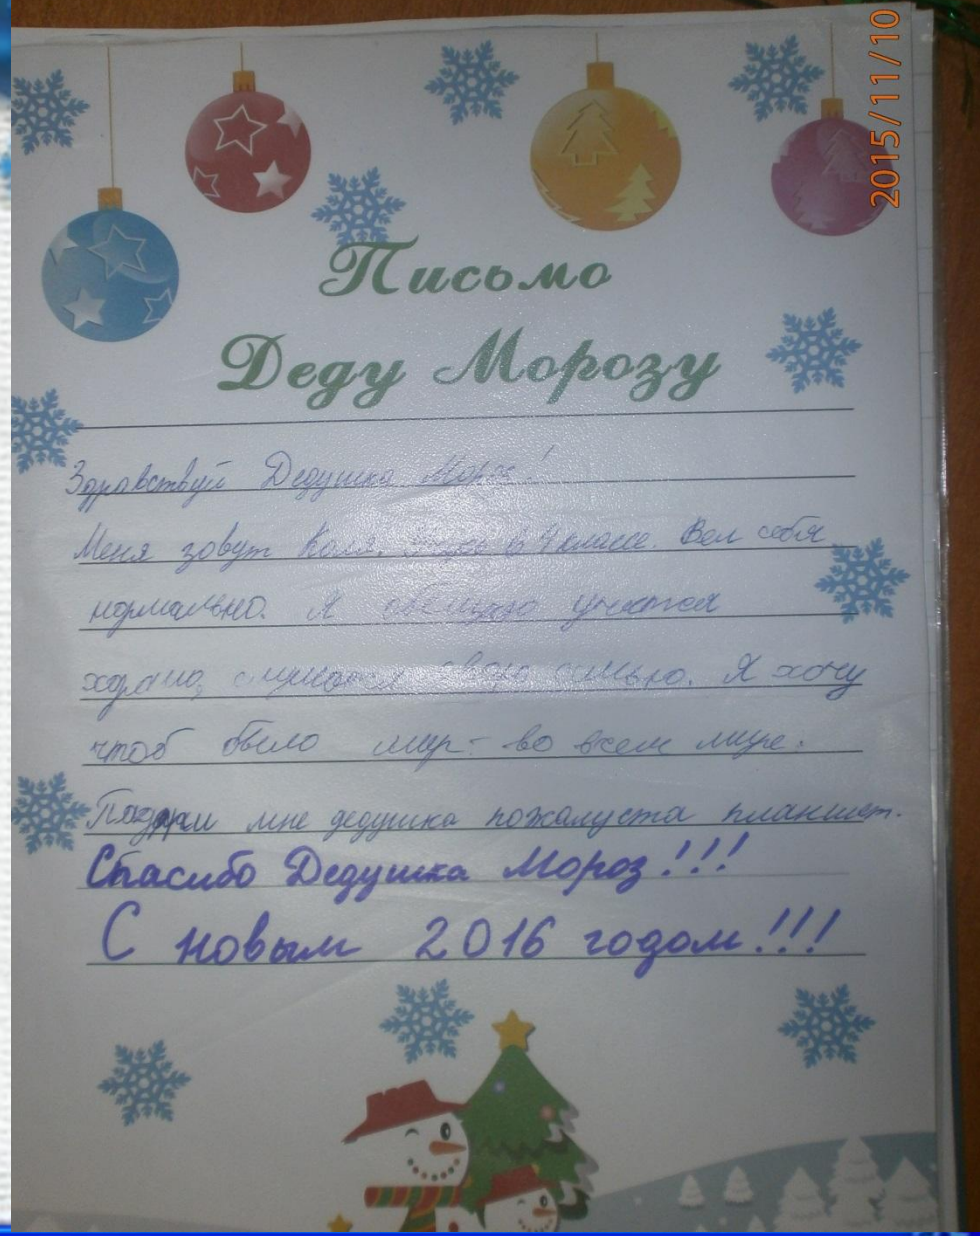 2015/11/10
Письмо
Деду Морозу
Здравствуй Дедушка Мороз!
Меня зовут Коля. Учусь в 4 классе. Вел себя
нормально. Я обещаю учится
хорошо, слушатся свою семью. Я хочу
чтоб было мир во всем мире.
Подари мне дедушка пожалуста планшет.
Спасибо Дедушка Мороз!!!
С новым 2016 годом!!!